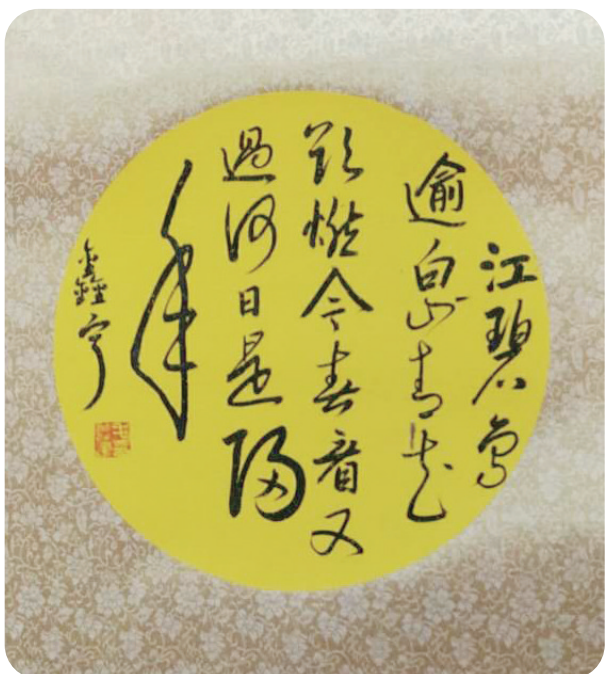 江碧鸟
逾白山青花
欲燃今春看又
过何日是归
年
鑫宇